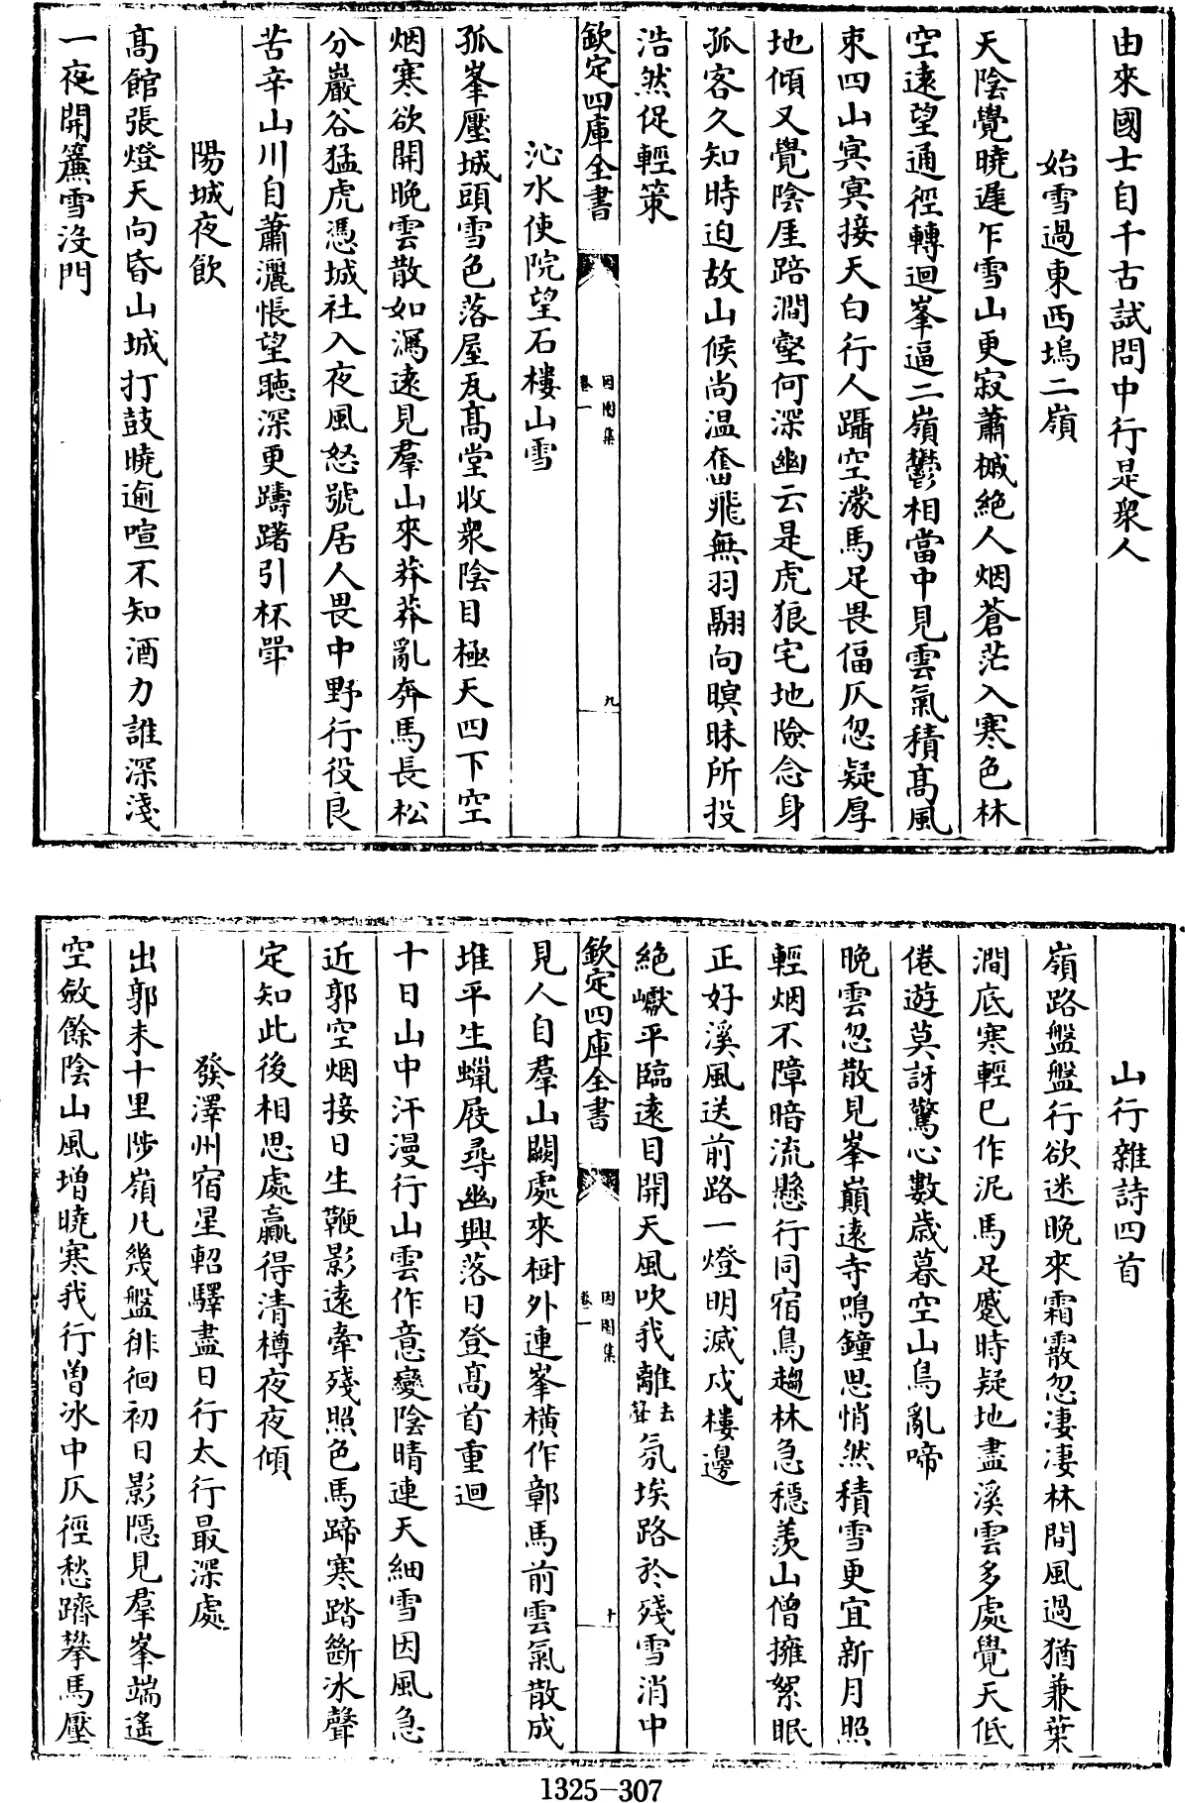 由來國士自千古試問中行是衆人
始雪過東西塢二嶺
天陰覺曉遲乍雪山更寂蕭槭絶人烟蒼茫入寒色林
空遠望通徑轉迴峯逼二嶺鬱相當中見雲氣積髙風
束四山寞寞接天白行人躡空濛馬足畏偪仄忽疑厚
地傾又覺陰厓踣澗壑何深幽云是虎狼宅地險念身
孤客久知時迫故山候尚温奮飛無羽翮向暝昧所投
浩然促輕策
欽定四庫全書
因園集
卷一
九
沁水使院望石樓山雪
孤峯壓城頭雪色落屋瓦髙堂收衆陰目極天四下空
烟寒欲開晚雲散如瀉遠見羣山來莽莽亂奔馬長松
分巖谷猛虎憑城社入夜風怒號居人畏中野行役良
苦辛山川自蕭灑悵望聽深更躊躇引杯斝
陽城夜飲
髙館張燈天向昏山城打鼓曉逾喧不知酒力誰深淺
一夜開簾雪沒門
山行雜詩四首
嶺路盤盤行欲迷晚來霜霰忽淒淒林間風過猶兼葉
澗底寒輕已作泥馬足蹙時疑地盡溪雲多處覺天低
倦遊莫訝驚心數歲暮空山鳥亂啼
晚雲忽散見峯巔遠寺鳴鐘思悄然積雪更宜新月照
輕烟不障暗流懸行同宿鳥趨林急穩羡山僧擁絮眠
正好溪風送前路一燈明滅戍樓邊
絶巘平臨遠目開天風吹我離去聲氛埃路於殘雪消中
欽定四庫全書
因園集
卷一
十
見人自羣山闕處來樹外連峯橫作鄣馬前雲氣散成
堆平生蠟屐尋幽興落日登髙首重迴
十日山中汗漫行山雲作意變陰晴連天細雪因風急
近郭空烟接日生鞭影遠牽殘照色馬蹄寒踏斷冰聲
定知此後相思處贏得清樽夜夜傾
發澤州宿星軺驛盡日行太行最深處
出郭未十里陟嶺凡幾盤徘徊初日影隱見羣峯端遙
空斂餘陰山風增曉寒我行曽冰中仄徑愁躋攀馬壓
1325-307